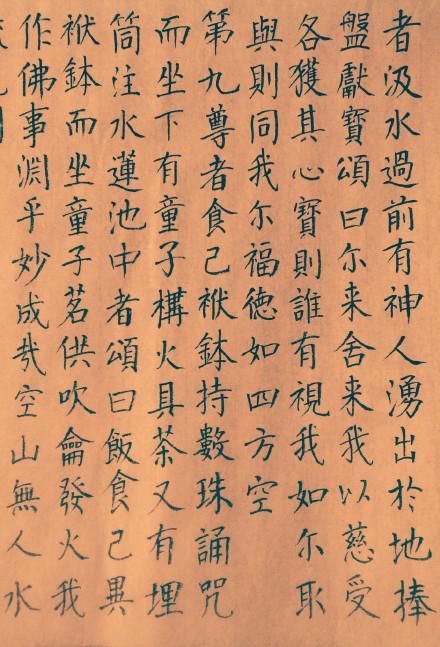 者汲水過前有神人湧出於地捧
盤獻寶頌曰尓来舍来我以慈受
各獲其心寶則誰有視我如尓取
與則同我尓福德如四方空
第九尊者食已袱鉢持數珠誦咒
而坐下有童子構火具茶又有埋
筒注水蓮池中者頌曰飯食已異
袱鉢而坐童子茗供吹籥發火我
作佛事淵乎妙成㢤空山無人水